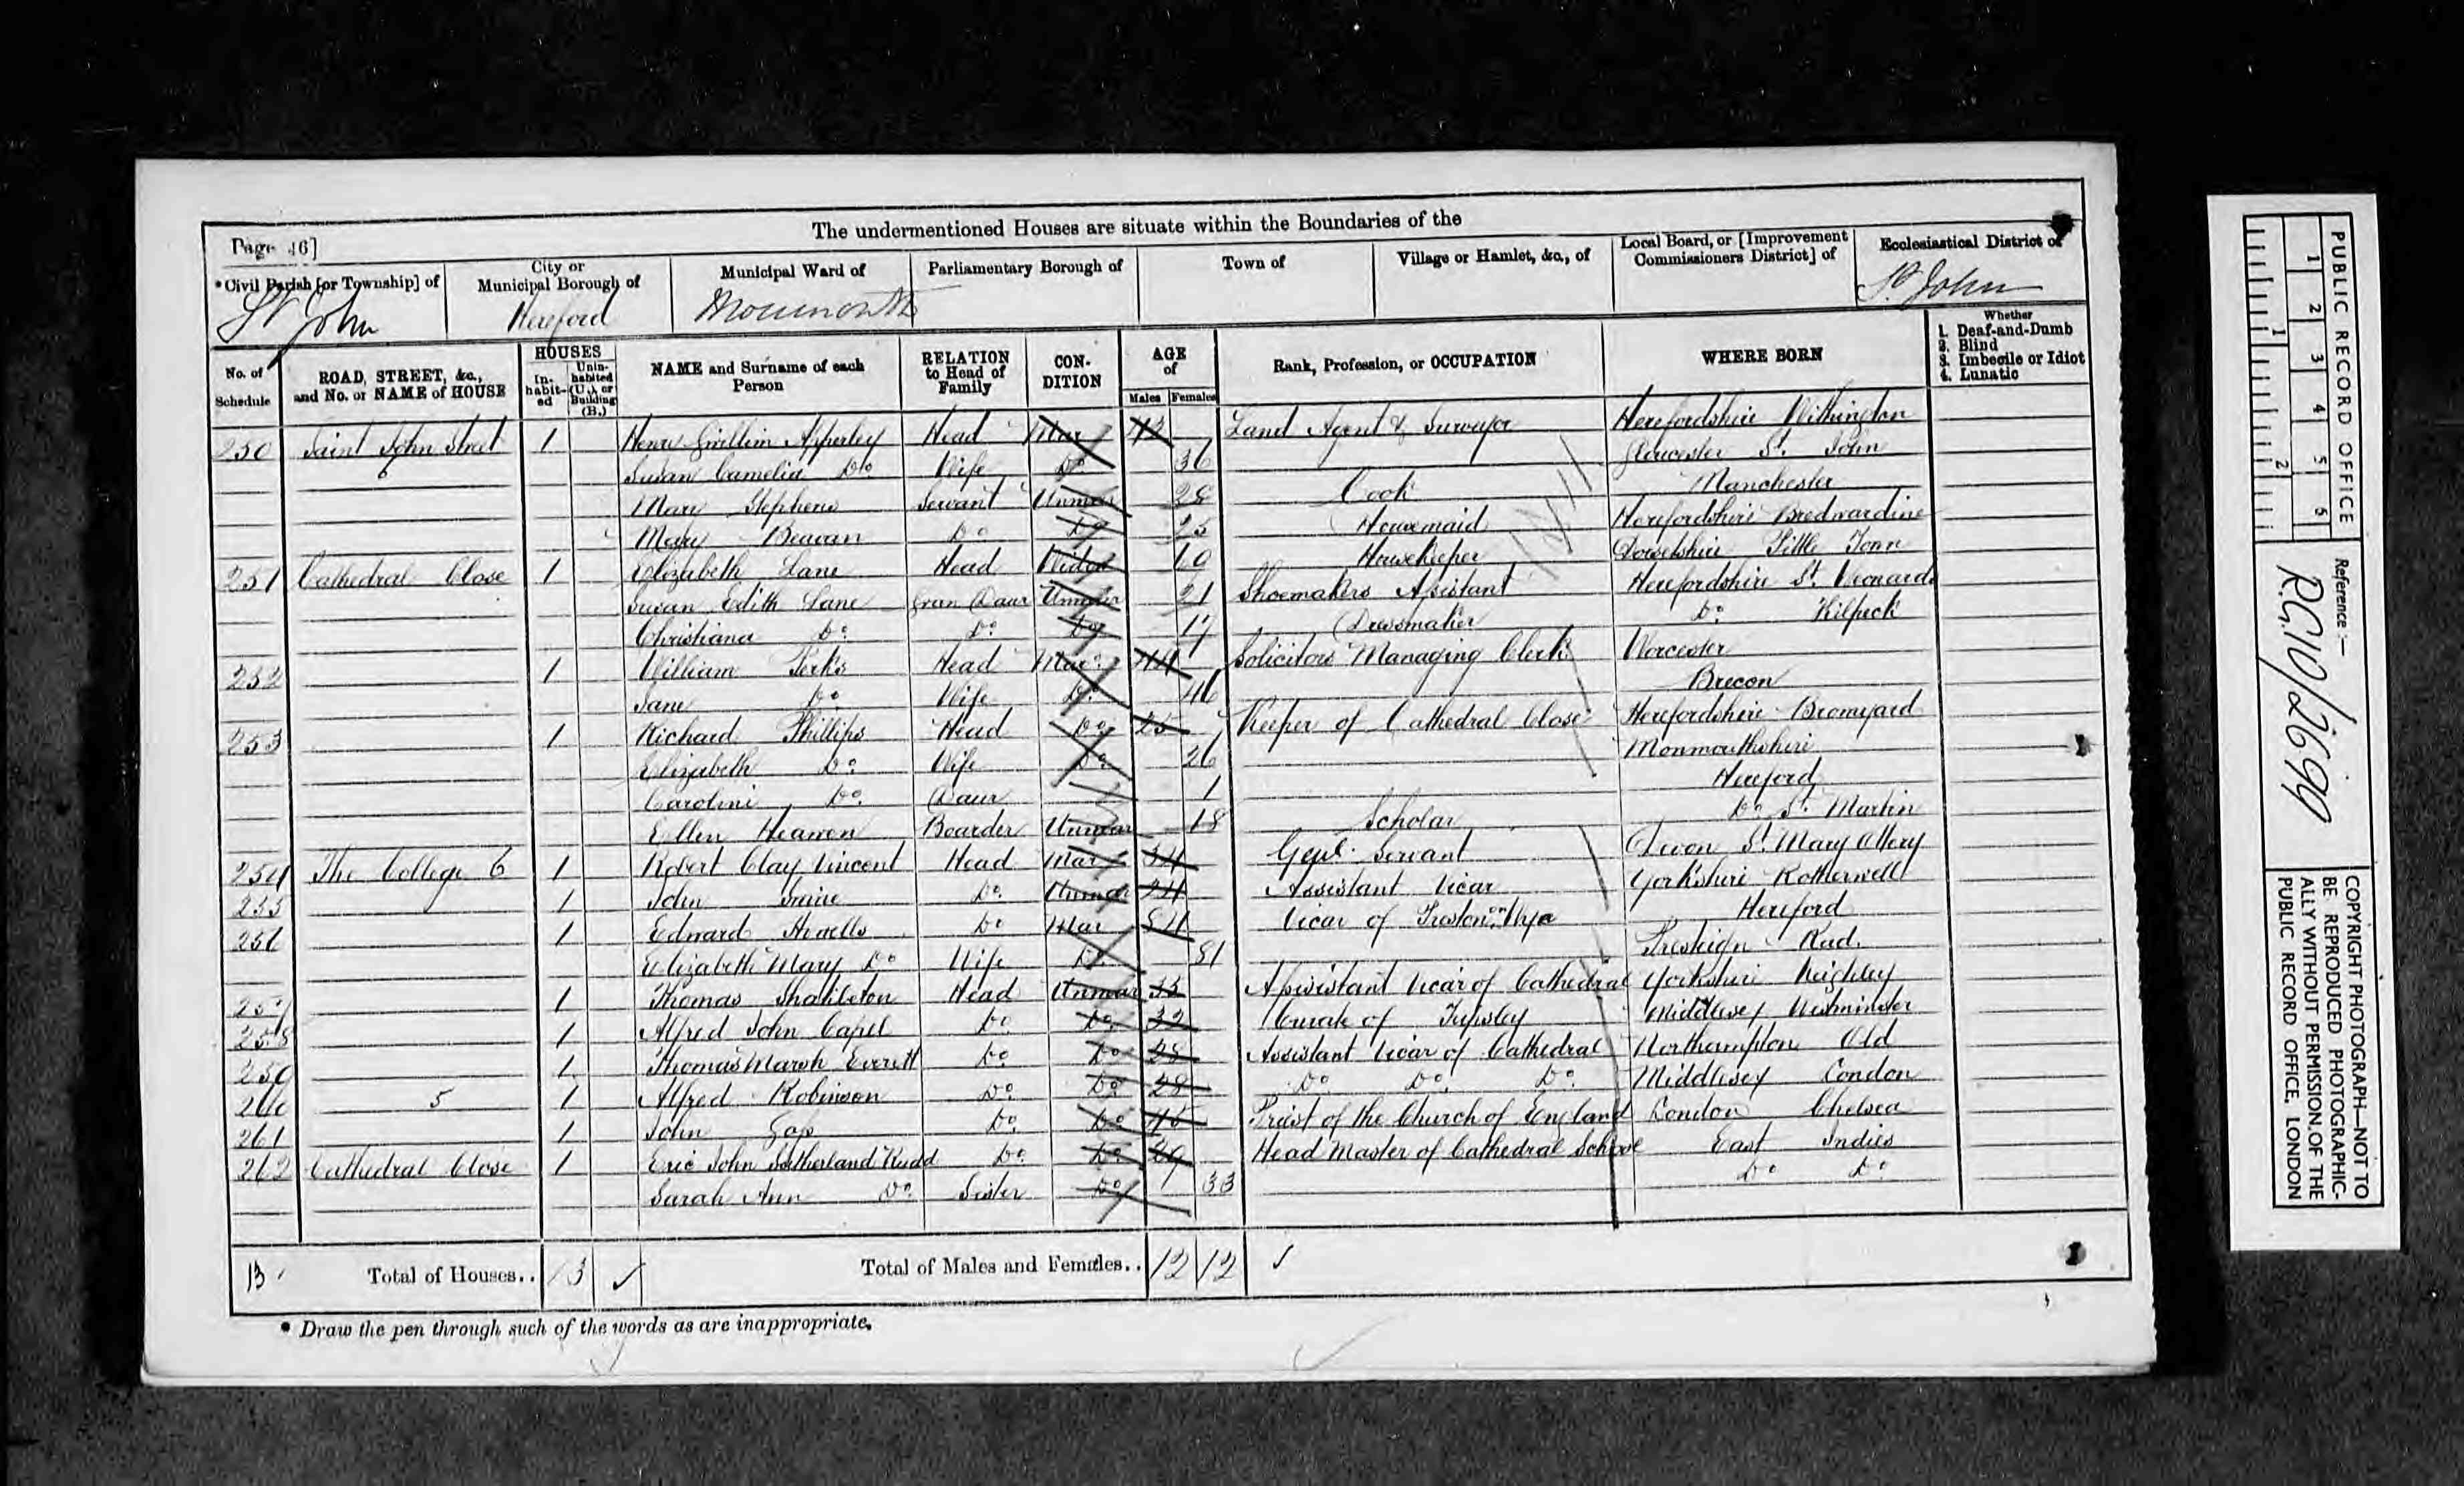 The undermentioned Houses are situate within the Boundaries of the
Page 46]
*Civil Parish [or Township] of
City or Municipal Borough of
Municipal Ward of
Parliamentary Borough of
Town of
Village or Hamlet, &c., of
Local Board, or [Improvement Commissioners District] of
Ecclesiastical District of
St John
Hereford
Monmouth
St. John
No. of Schedule
ROAD, STREET, &c., and No. or NAME of HOUSE
HOUSES
In-habit-ed
Unin-habited (U.), or Building (B.)
NAME and Surname of each Person
RELATION to Head of Family
CON-DITION
AGE of
Males
Females
Rank, Profession, or OCCUPATION
WHERE BORN
Whether
1. Deaf-and-Dumb
2. Blind
3. Imbecile or Idiot
4. Lunatic
250 Saint John Street 1 Henry Apperley Head Mar Land Agent & Surveyor Herefordshire Withington
6 Susan Do Wife Do 36 Gloucester St. John
Mary Stephens Servant Unmar 28 Cook Manchester
Mary Beavan Do Do 25 Housemaid Herefordshire Bredwardine
251 Cathedral Close 1 Elizabeth Lane Head Widow Housekeeper
Susan Edith Lane Gran Daur Unmar 21 Shoemakers Assistant Herefordshire St. Leonards
Christiana Do Do Do 17 Dressmaker Do Kilpeck
252 1 William Perks Head Mar 44 Solicitors Managing Clerk Worcester
Jane Do Wife Do 46 Brecon
253 1 Richard Phillips Head Do 25 Keeper of Cathedral Close Herefordshire Bromyard
Elizabeth Do Wife Do 26 Monmouthshire
Caroline Do Daur 1 Hereford
Ellen Boarder Unmar 18 Scholar Do St. Martin
254 The College 6 1 Robert Clay Vincent Head Mar 34 Genl. Servant Devon St. Mary Ottery
255 1 John Do Unmar 24 Assistant Vicar Yorkshire Rotherwell
256 1 Edward Howells Do Mar 54 Vicar of Preston on Wye Hereford
Elizabeth Mary Do Wife Do 51 Presteign Rad.
257 1 Thomas Head Unmar 33 Assistant Vicar of Cathedral Yorkshire Keighley
258 1 Alfred John Capel Do Do 32 Curate of Tupsley Middlesex Westminster
259 1 Thomas Marsh Everett Do Do 28 Assistant Vicar of Cathedral Northampton Old
260 5 1 Alfred Robinson Do Do 28 Do Do Do Middlesex London
261 1 John Goss Do Do Priest of the Church of England London Chelsea
262 Cathedral Close 1 Eric John Sutherland Rudd Do Do Head Master of Cathedral School East Indies
Sarah Ann Do Sister Do 33 Do Do
13 Total of Houses.. 13 Total of Males and Females.. 12 12
* Draw the pen through such of the words as are inappropriate.
PUBLIC RECORD OFFICE
1 2 3 4 5 6
1 2
Reference:-
R.G.10/2699
COPYRIGHT PHOTOGRAPH—NOT TO BE REPRODUCED PHOTOGRAPHIC-ALLY WITHOUT PERMISSION OF THE PUBLIC RECORD OFFICE, LONDON